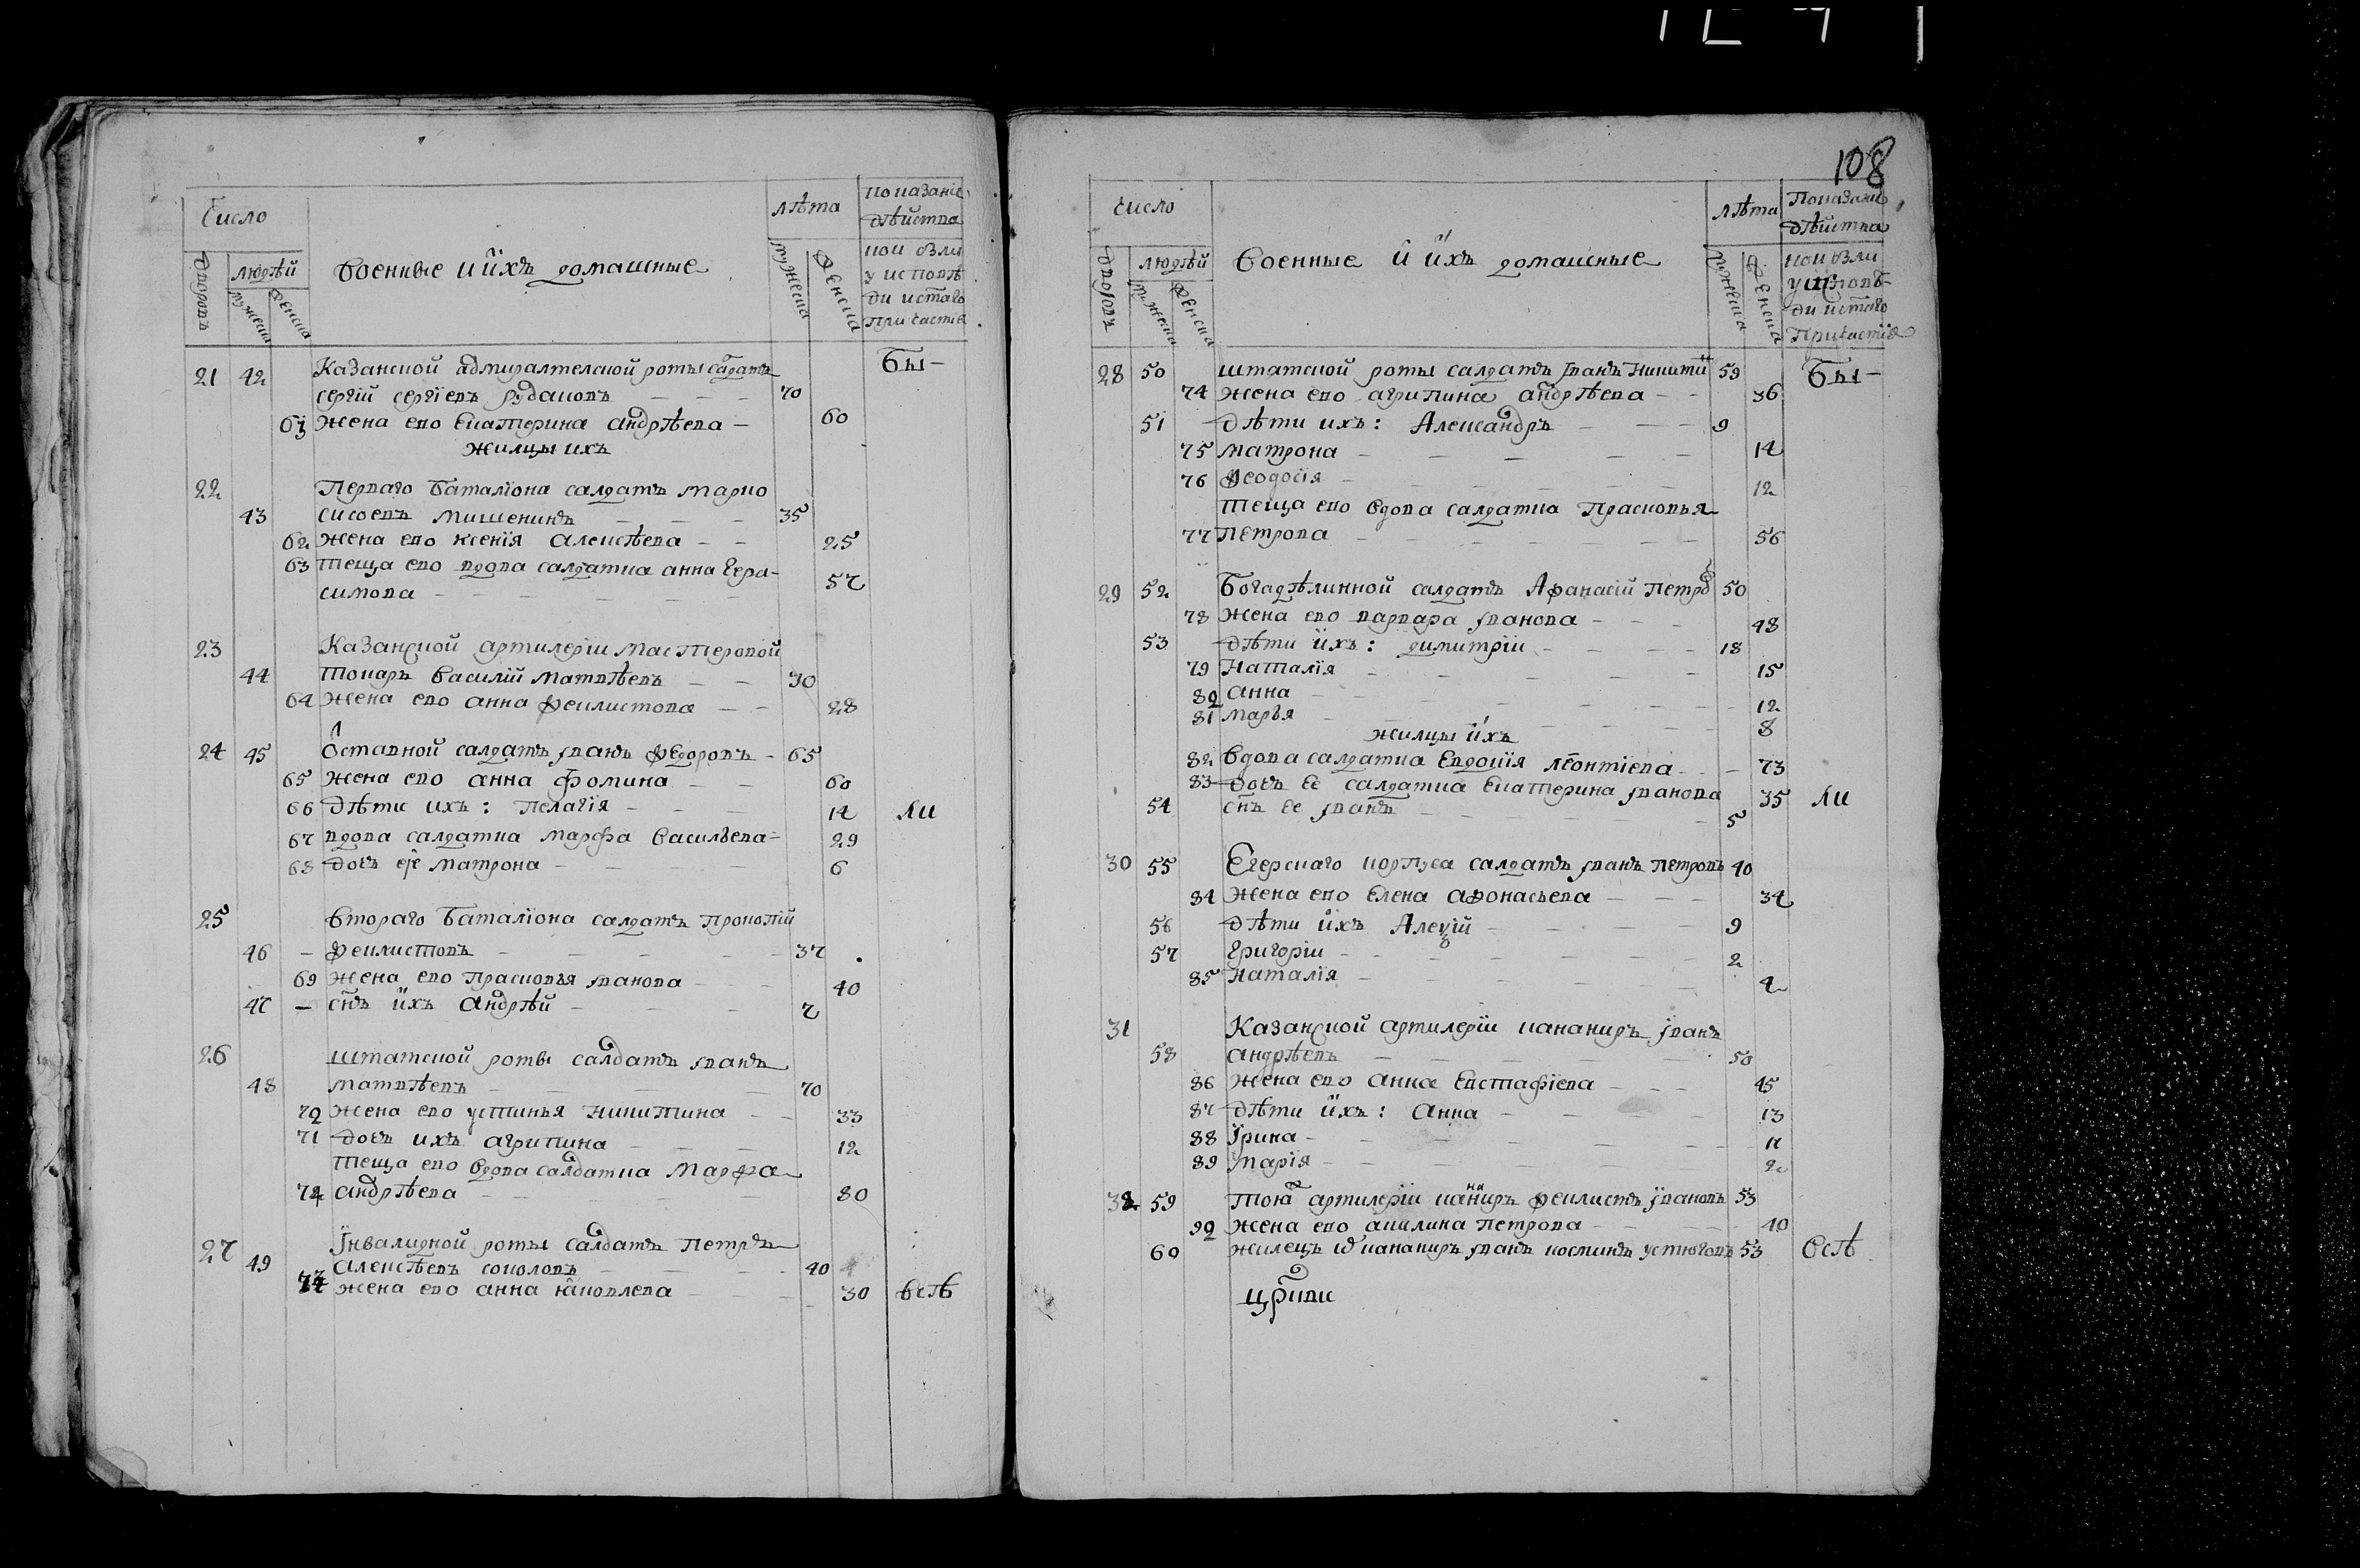 Число
лѣта
показаніе
дѣйства
дворовъ
людѣй
мужеска
женска
военные и ихъ домашные
мужеска
женска
кои были
у исповѣ
ди истаго
причастіа
21 42 Казанской адмиралтелской роты салдатъ Бы-
сергій сергіевъ рудаковъ — — — 70
61 жена ево Екатерина андрѣева — 60
жилцы ихъ
22 Перваго баталіона салдатъ марко
43 сисоевъ мишенинъ — — — 35
62 жена ево ксенія алексѣева — — 25
63 теща ево вдова салдатка анна гера-
симова — — — — — — 57
23 Казанской артилеріи мастеровой
44 токарь василий матвѣевъ — — 30
64 жена ево анна феклистова — — 28
24 45 Оставной салдатъ іванъ федоровъ - 65
65 жена ево анна фомина — — 60
66 дѣти ихъ: пелагія — — — 14 ли
67 вдова салдатка марфа васильева - 29
68 дочь ее матрона — — — 6
25 втораго баталіона салдатъ прокопій
46 — феклистовъ — — — — 37
69 жена ево прасковья іванова — — 40
47 — снъ ихъ андрѣй — — — 7
26 штатской роты салдатъ іванъ
48 матвѣевъ — — — — 70
70 жена ево устинья никитина — — 33
71 дочь ихъ агрипина — — — 12
теща ево вдова салдатка марфа
72 андрѣева — — — — 80
27 Інвалидной роты салдатъ петръ
49 алексѣевъ соколовъ — — — 40
жена ево анна яковлева — — — 30 всѣ
108
число
лѣта
Показаніе
дѣйства
дворовъ
людѣй
мужеска
женска
военные и ихъ домашные
мужеска
женска
кои были
у исповѣ-
ди истаго
причастіа
28 50 штатской роты салдатъ іванъ никитиі 59 Бы-
74 жена ево агрипина андрѣева — — 36
51 дѣти ихъ: Александръ — — — 9
75 матрона — — — — — 14
76 феодосія — — — — — 12
теща ево вдова салдатка прасковья
77 петрова — — — — — — 56
29 52 Богадѣлинной салдатъ Афанасій петро 50
78 жена ево варвара іванова — — — 48
53 дѣти ихъ: димитріи — — — — 18
79 наталія — — — — — 15
80 анна — — — — — — 12
81 марья — — — — — — 8
жилцы ихъ
82 вдова салдатка евдокія леонтіева — — 73
83 дочь ее салдатка екатерина іванова 35 ли
54 снъ ее іванъ — — — — — — 5
30 55 Егерскаго корпуса салдатъ іванъ петровъ 40
84 жена ево елена афонасьева — — — 34
56 дѣти ихъ Алексій — — — — 9
57 григоріи — — — — — — — 2
85 наталія — — — — — — 4
31 Казанской артилеріи кананиръ іванъ
58 андрѣевъ — — — — — — 50
86 жена ево анна евстафіева — — — 45
87 дѣти ихъ: анна — — — — 13
88 ірина — — — — — — — 11
89 марія — — — — — — 2
32 59 тоя артилеріи кананиръ феклистъ івановъ 53
90 жена ево акилина петрова — — — 40
60 жилецъ ѿ кананиръ іванъ косминъ устюговъ 53 всѣ
цркви